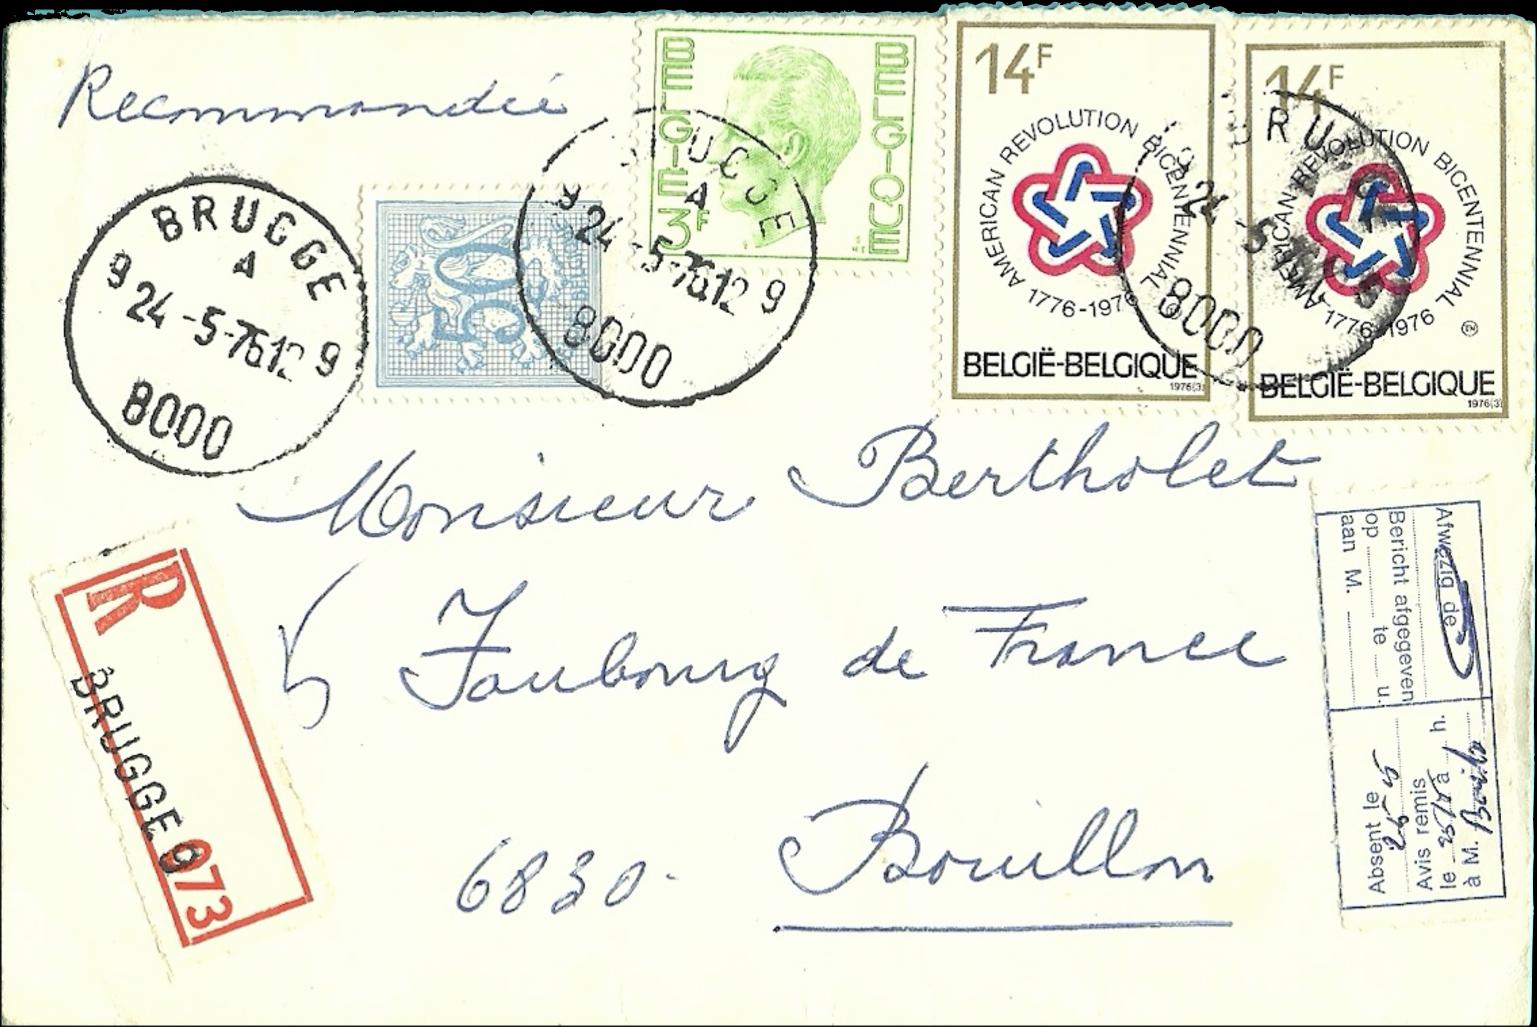 Recommandée
BELGIE
BELGIQUE
3F
14F
AMERICAN REVOLUTION BICENTENNIAL
1776-1976
BELGIË-BELGIQUE
1976(3)
14F
AMERICAN REVOLUTION BICENTENNIAL
1776-1976
BELGIË-BELGIQUE
1976(3)
50
BRUGGE
A
9 24-5-76 12 9
8000
BRUGGE
A
9 24-5-76 12 9
8000
BRU
24-5-76
8000
Monsieur Bertholet
5 Faubourg de France
6830 Bouillon
R
BRUGGE 9
073
Afwezig de
Bericht afgegeven
op te u.
aan M.
Absent le
25-5
Avis remis
le 25/5 à h.
à M.